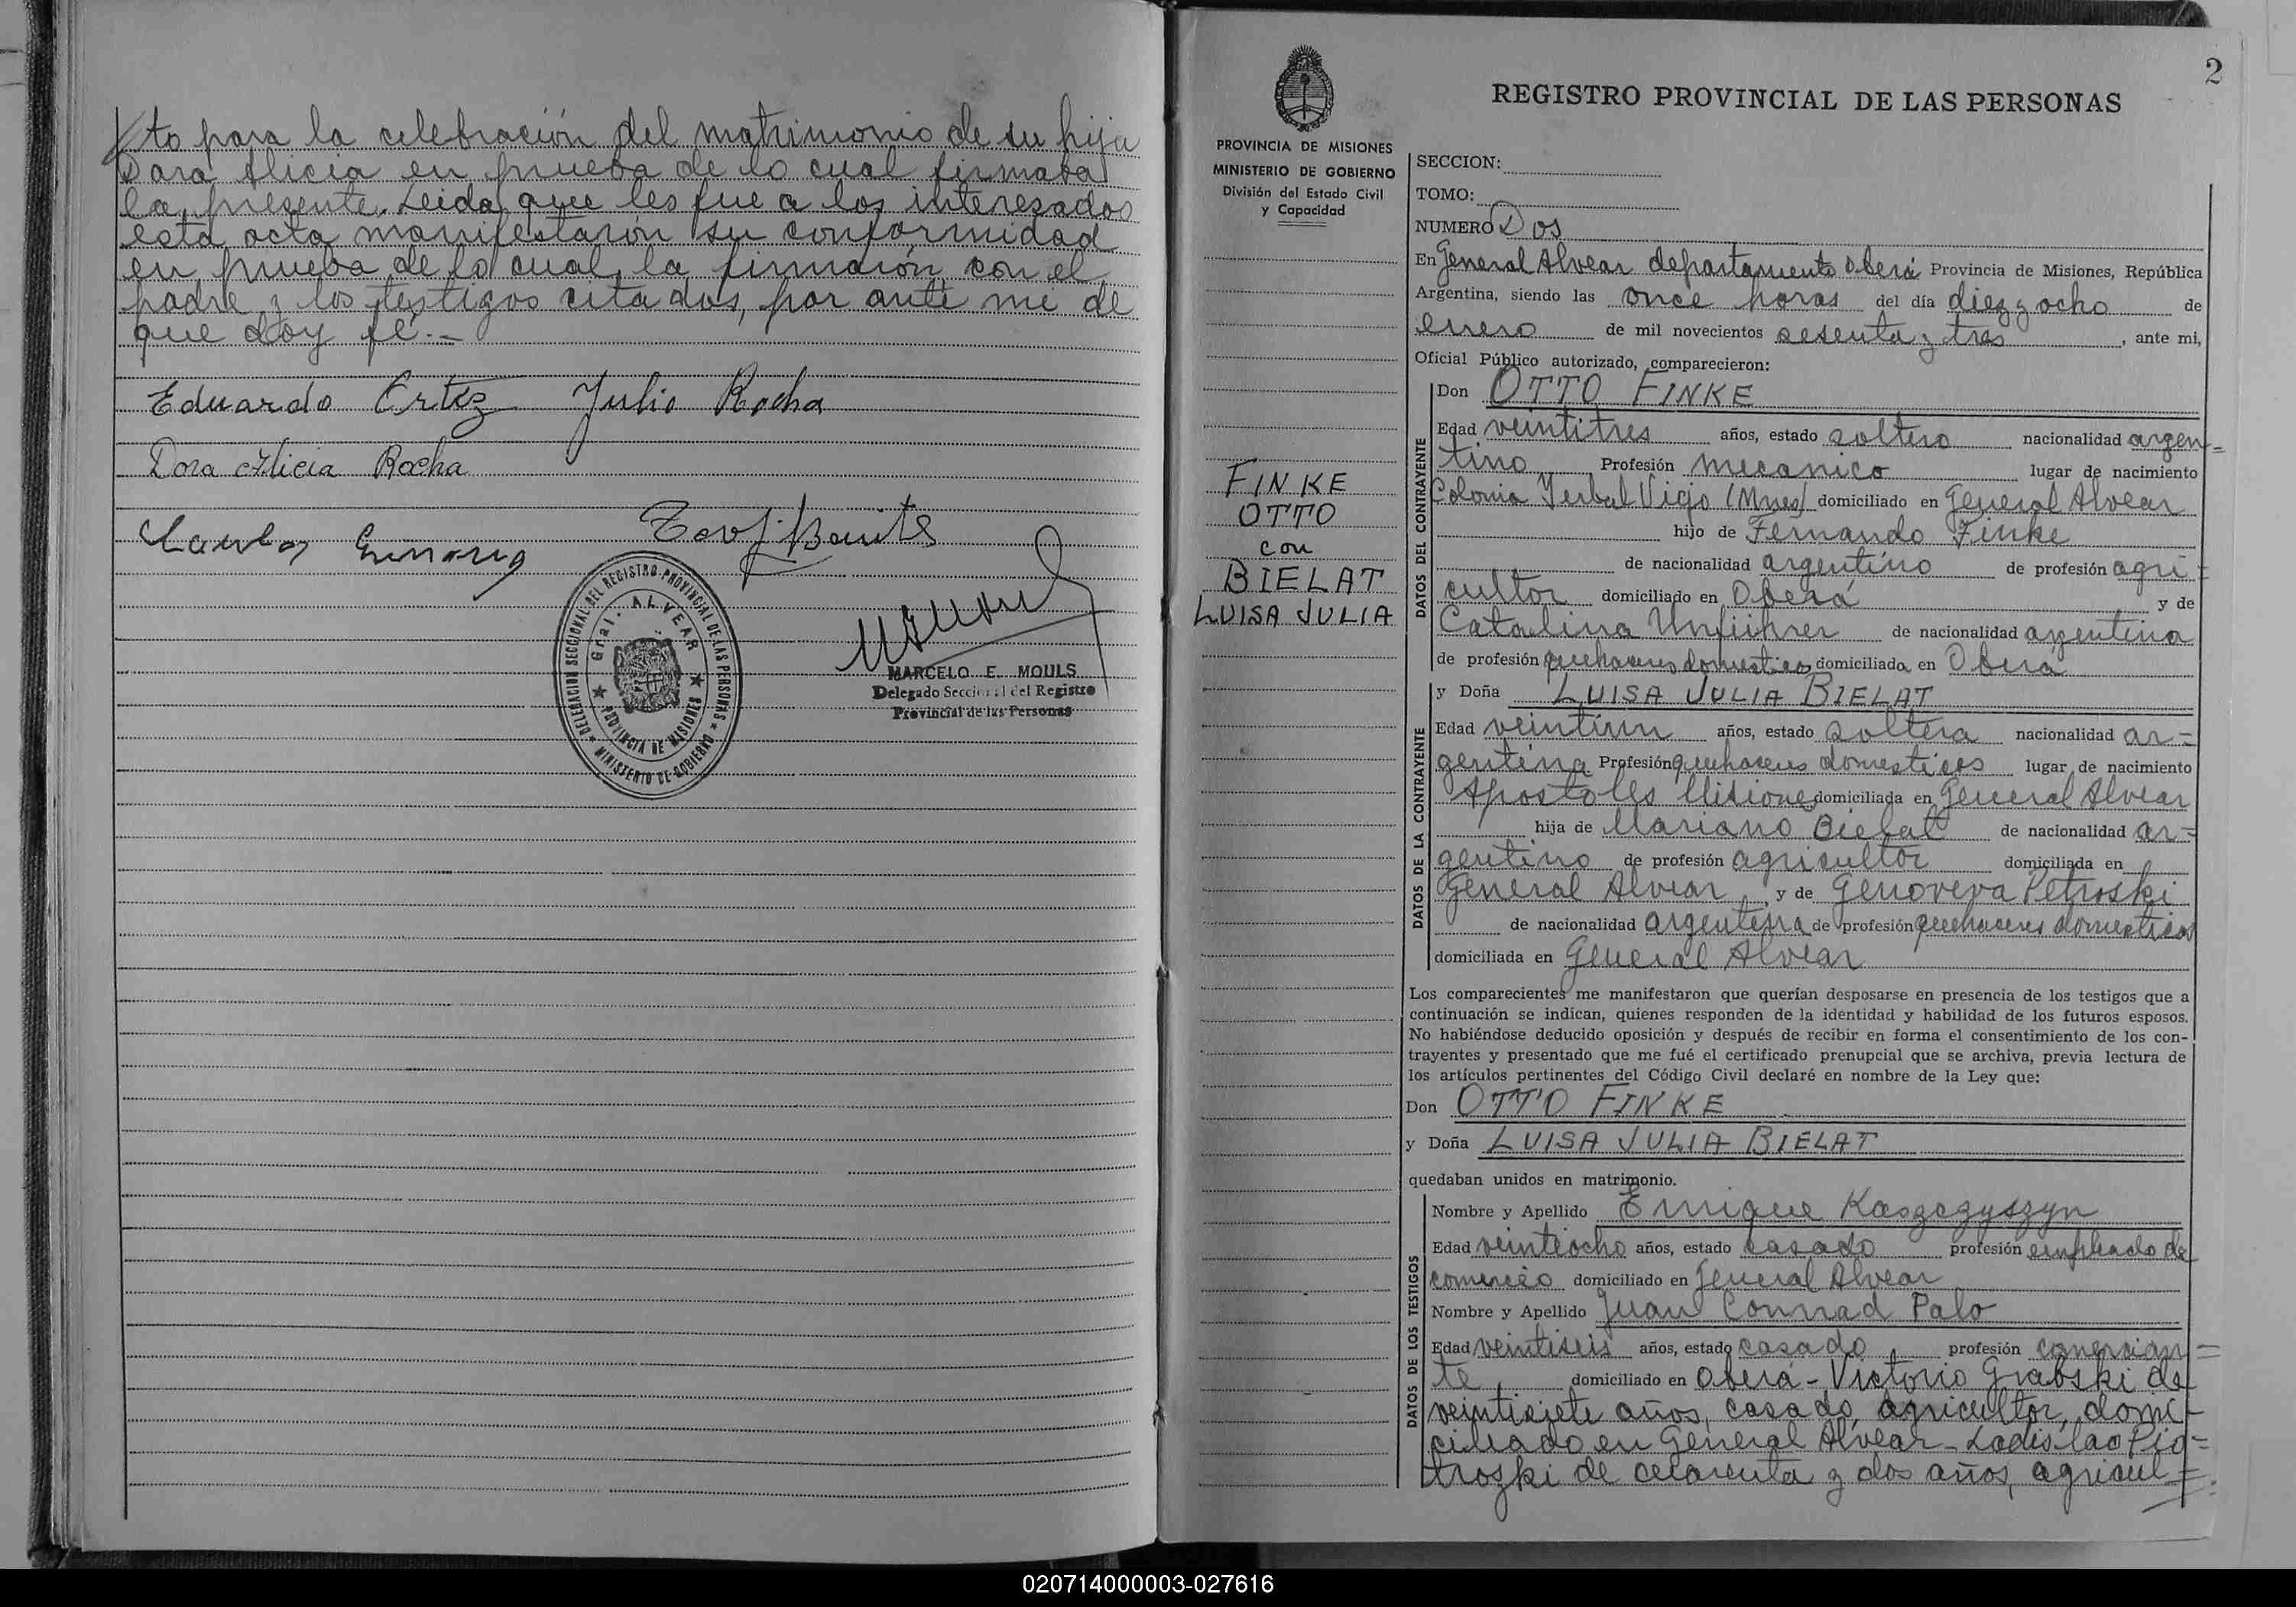 to para la celebración del matrimonio de su hija
Dora Alicia en prueba de lo cual firmaba
la presente. Leida que les fue a los interesados
esta acta manifestaron su conformidad
en prueba de lo cual, la firmaron con el
padre y los testigos citados, por ante mi de
que doy fé.-
Eduardo Ortiz Julio Rocha
Dora Alicia Rocha
DELEGACION SECCIONAL DEL REGISTRO PROVINCIAL DE LAS PERSONAS
Gral. ALVEAR
PROVINCIA DE MISIONES
MINISTERIO DE GOBIERNO
MARCELO E. MOULS
Delegado Seccional del Registro
Provincial de las Personas
2
REGISTRO PROVINCIAL DE LAS PERSONAS
PROVINCIA DE MISIONES
MINISTERIO DE GOBIERNO
División del Estado Civil
y Capacidad
FINKE
OTTO
con
BIELAT
LUISA JULIA
SECCION:
TOMO:
NUMERO Dos
En General Alvear departamento Oberá Provincia de Misiones, República
Argentina, siendo las once horas del día diez y ocho de
enero de mil novecientos sesenta y tres, ante mi,
Oficial Público autorizado, comparecieron:
DATOS DEL CONTRAYENTE
Don OTTO FINKE
Edad veintitres años, estado soltero nacionalidad argen=
tino Profesión mecanico lugar de nacimiento
Colonia Yerbal Viejo (Mnes) domiciliado en General Alvear
hijo de Fernando Finke
de nacionalidad argentino de profesión agri=
cultor domiciliado en Oberá y de
Catalina Unführer de nacionalidad argentina
de profesión quehaceres domesticos domiciliada en Oberá
DATOS DE LA CONTRAYENTE
y Doña LUISA JULIA BIELAT
Edad veintiun años, estado soltera nacionalidad ar=
gentina Profesión quehaceres domesticos lugar de nacimiento
Apostoles Misiones domiciliada en General Alvear
hija de Mariano Bielat de nacionalidad ar=
gentino de profesión agricultor domiciliada en
General Alvear, y de Genoveva Petroski
de nacionalidad argentina de profesión quehaceres domesticos
domiciliada en General Alvear
Los comparecientes me manifestaron que querían desposarse en presencia de los testigos que a
continuación se indican, quienes responden de la identidad y habilidad de los futuros esposos.
No habiéndose deducido oposición y después de recibir en forma el consentimiento de los con-
trayentes y presentado que me fué el certificado prenupcial que se archiva, previa lectura de
los artículos pertinentes del Código Civil declaré en nombre de la Ley que:
Don OTTO FINKE
y Doña LUISA JULIA BIELAT
quedaban unidos en matrimonio.
DATOS DE LOS TESTIGOS
Nombre y Apellido Enrique Kaszczyszyn
Edad veintiocho años, estado casado profesión empleado de
comercio domiciliado en General Alvear
Nombre y Apellido Juan Conrad Palo
Edad veintiseis años, estado casado profesión comercian=
te domiciliado en Oberá - Victorio Grabski de
veintisiete años, casado, agricultor, domi-
ciliado en General Alvear - Ladislao Pio=
troski de cuarenta y dos años, agricul=
020714000003-027616